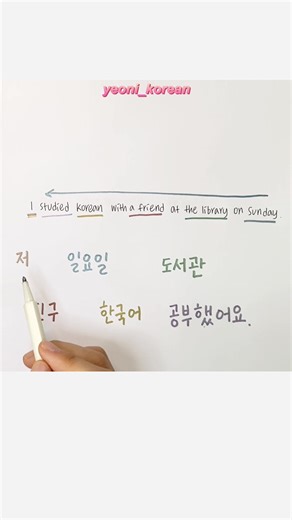 yeoni_korean
I studied korean with a friend at the library on Sunday.
저 일요일 도서관
구 한국어 공부했어요.